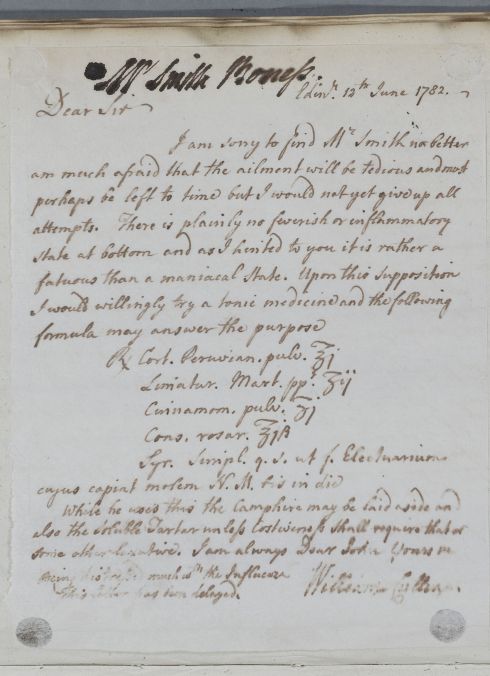 Mr Smith Boness.
Edinr. 12th June 1782.
Dear Sir
I am sorry to find Mr Smith no better
am much afraid that the ailment will be tedious and must
perhaps be left to time but I would not yet give up all
attempts. There is plainly no feverish or inflammatory
state at bottom and as I hinted to you it is rather a
fatuous than a maniacal state. Upon this supposition
I would willingly try a tonic medicine and the following
formula may answer the purpose
℞ Cort. Peruvian. pulv. ℥j
Limatur. Mart. ppt. ʒij
Cinnamom. pulv. ʒj
Cons. rosar. ℥jß
Syr. Simpl. q. s. ut f. Electuarium
cujus capiat molem N. M. bis in die
While he uses this the Camphire may be laid aside and
also the Soluble Tartar unless costiveness shall require that or
some other laxative. I am always Dear Yours
being much wth the Influenza
This letter has been delayed.
William Cullen.